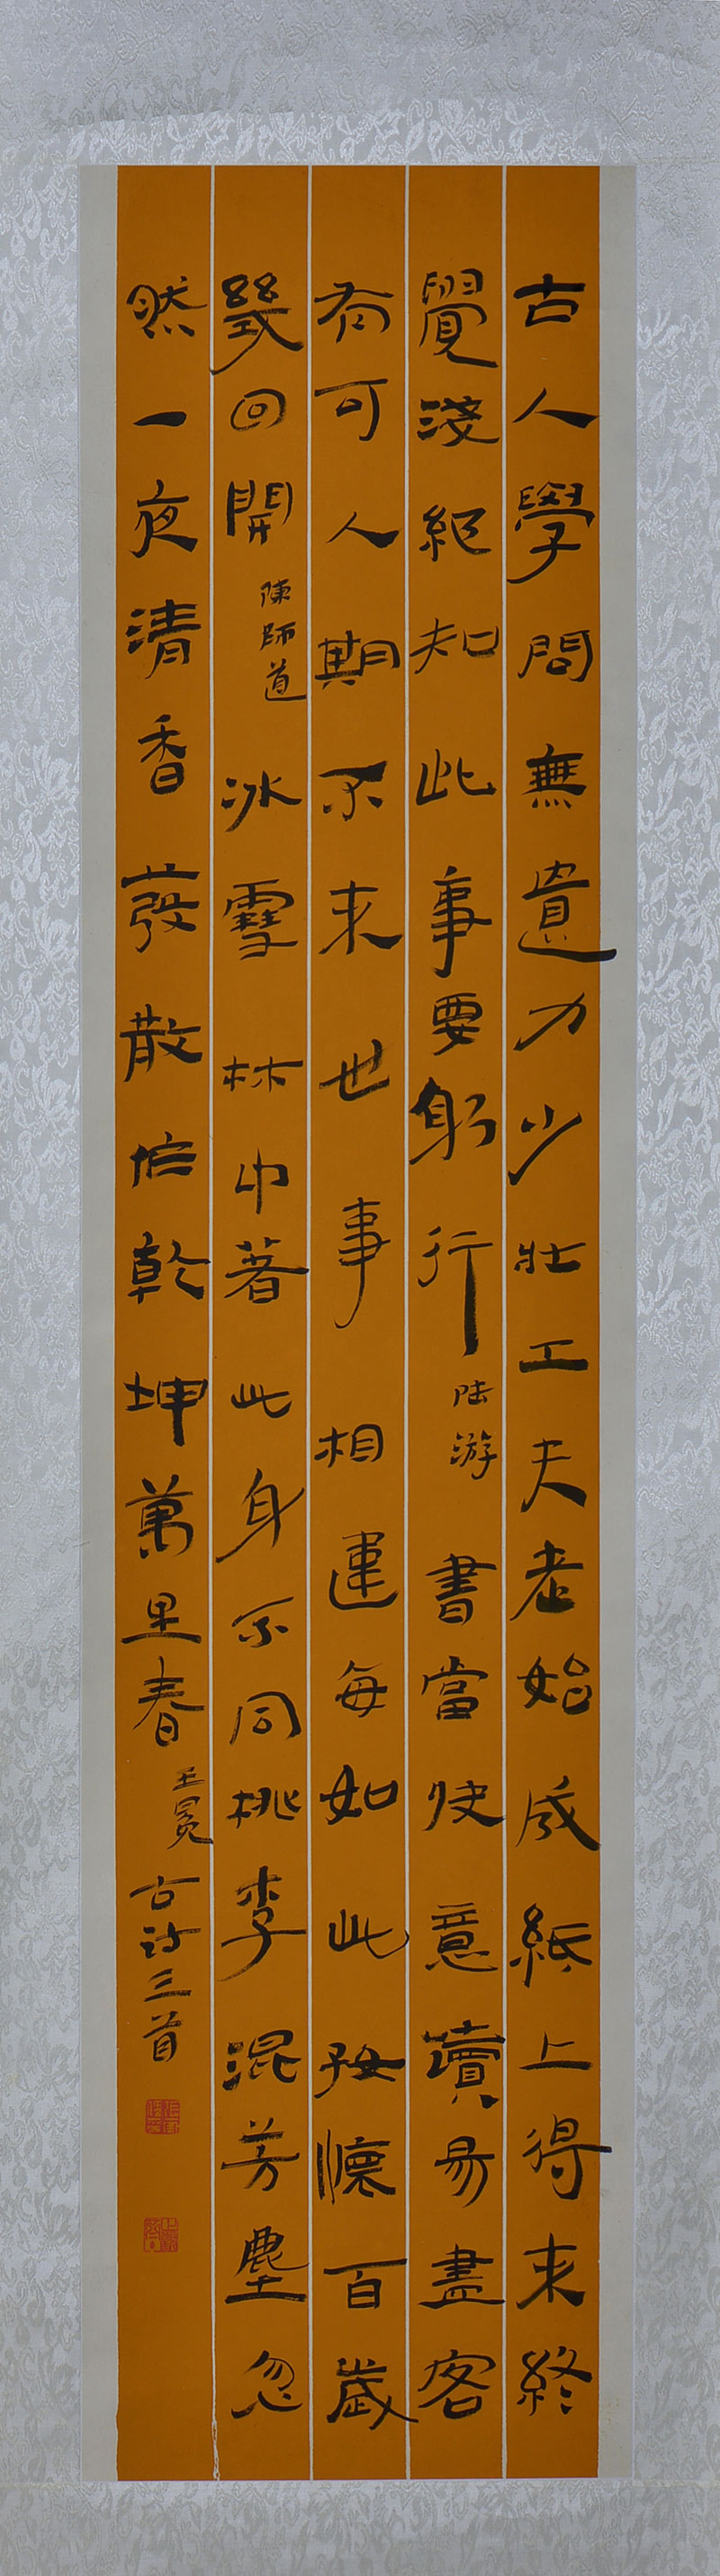 古人學問無遺力少壯工夫老始成紙上得來終
覺淺絕知此事要躬行
陸游
書當快意讀易盡客
有可人期不來也事相違每如此好懷百歲
幾回開
陳師道
冰雪林中著此身不同桃李混芳塵忽
然一夜清香發散作乾坤萬里春
王冕
古詩三首